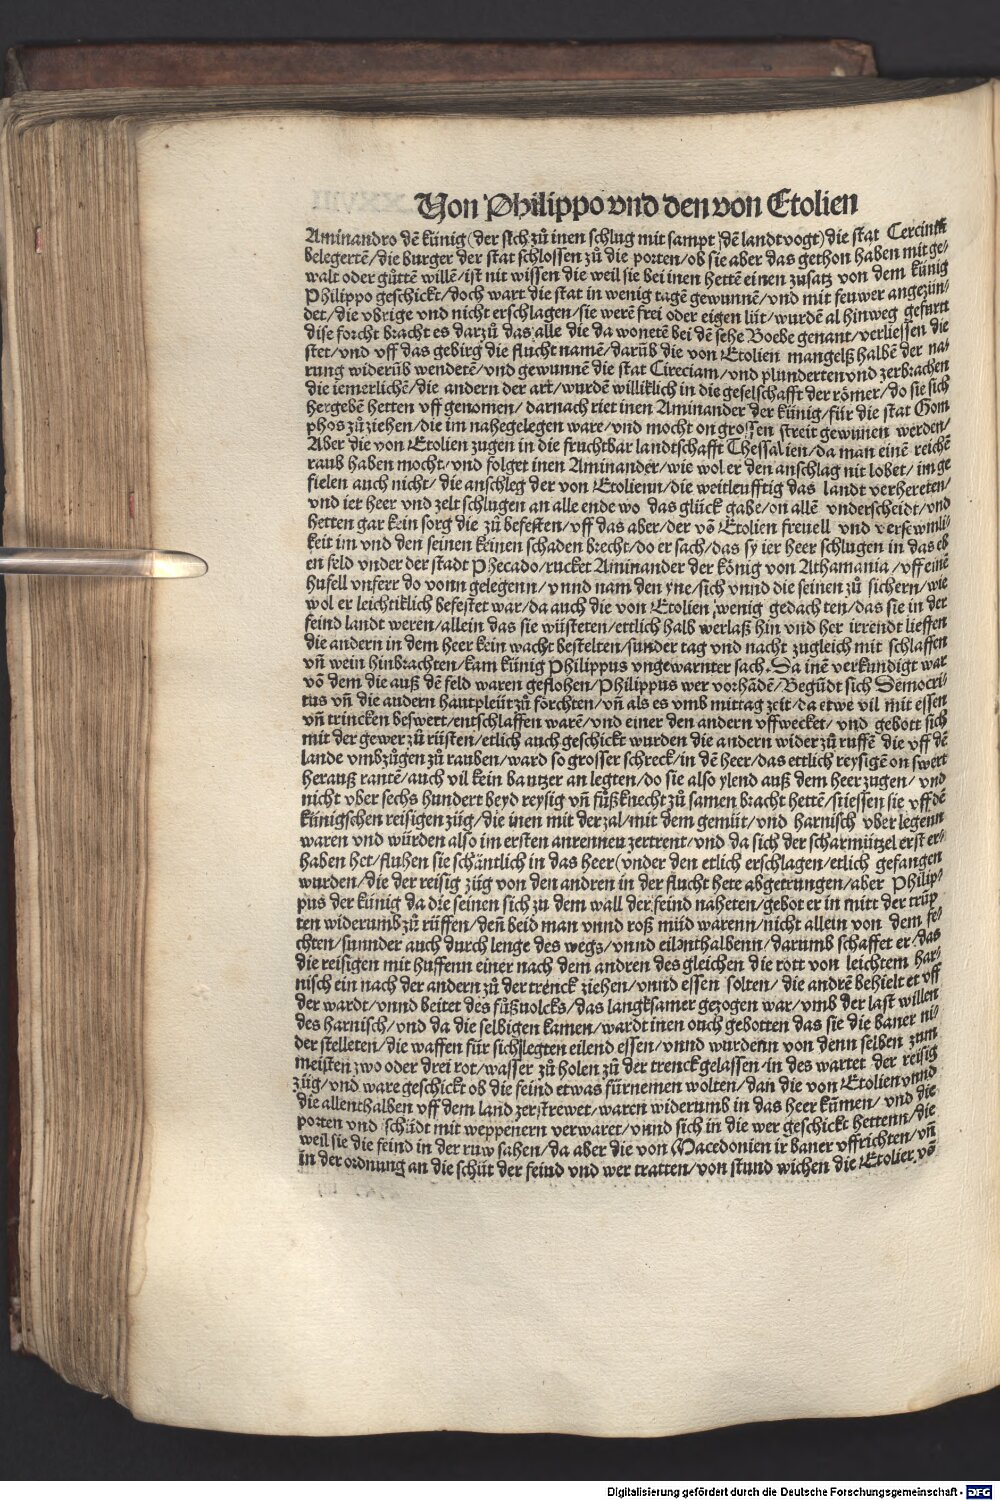 Von Philippo vnd den von Etolien
Aminandro dẽ künig (der sich zů inen schlug mit sampt dẽ landtvogt) die stat Cercinũ
belegertẽ/die burger der stat schlossen zů die porten/ob sie aber das gethon haben mit ge⸗
walt oder gůttẽ willẽ/ist nit wissen die weil sie bei inen hettẽ einen zusatz von dem künig
Philippo geschickt/doch wart die stat in wenig tagẽ gewunnẽ/vnd mit feuwer angezün⸗
det/die vbrige vnd nicht erschlagen/sie werẽ frei oder eigen lüt/wurdẽ al hinweg gefurtt
dise forcht bracht es darzů das alle die da wonetẽ bei dẽ sehe Boebe genant/verliessen die
stet/vnd vff das gebirg die flucht namẽ/darũb die von Etolien mangelß halbẽ der na⸗
rung widerũb wendetẽ/vnd gewunnẽ die stat Cireciam/vnd plunderten vnd zerbrachen
die iemerlichẽ/die andern der art/wurdẽ williklich in die geselschafft der römer/do sie sich
hergebẽ hetten vff genomen/darnach riet inen Aminander der künig/für die stat Gom
phos zů ziehen/die im nahe gelegen ware/vnd mocht on grossen streit gewunen werden/
Aber die von Etolien zugen in die fruchtbar landtschafft Thessalien/da man einẽ reichẽ
raub haben mocht/vnd folget inen Aminander/wie wol er den anschlag nit lobet/im ge
fielen auch nicht/die anschleg der von Etolienn/die weitleufftig das landt verhereten/
vnd ier heer vnd zelt schlugen an alle ende wo das glück gabe/on allẽ vnderscheidt/vnd
hetten gar kein sorg die zů befesten/vff das aber/der võ Etolien freuell vnd versewmli⸗
keit im vnd den seinen keinen schaden brecht/do er sach/das sy ier heer schlugen in das eb
en feld vnder der stadt Phecado/rucket Aminander der könig von Athamania/vff einẽ
husell vnferr do vonn gelegenn/vnnd nam den yne/sich vnnd die seinen zů sichern/wie
wol er leichtiklich befestet war/da auch die von Etolien wenig gedachten/das sie in der
feind landt weren/allein das sie wüsteten/ettlich halb werlaß hin vnd her irrendt lieffen
die andern in dem heer kein wacht bestelten/sunder tag vnd nacht zugleich mit schlaffen
vñ wein hinbrachten/kam künig Philippus vngewarnter sach. Da inẽ verkundigt war
võ dem die auß dẽ feld waren geflohen/Philippus wer vorhãdẽ/Begũdt sich Democri⸗
tus vñ die andern hautpleüt zů förchten/vñ als es vmb mittag zeit/da etwe vil mit essen
vñ trincken beswert/entschlaffen warẽ/vnd einer den andern vffwecket/vnd gebott sich
mit der gewer zů rüsten/etlich auch geschickt wurden die andern wider zů ruffẽ die vff dẽ
lande vmbzůgen zů rauben/ward so grosser schreck/in dẽ heer/das ettlich reysigẽ on swert
herauß rantẽ/auch vil kein bantzer an legten/do sie also ylend auß dem heer zugen/vnd
nicht vber sechs hundert beyd reysig vñ fůßknecht zů samen bracht hettẽ/stiessen sie vff dẽ
künigschen reisigen züg/die inen mit der zal/mit dem gemüt/vnd harnisch vber legenn
waren vnd würden also im ersten anrennen zertrent/vnd da sich der scharmützel erst er⸗
haben het/fluhen sie schãntlich in das heer (vnder den etlich erschlagen/etlich gefangen
wurden/die der reisig züg von den andren in der flucht hete abgetrungen/aber Philip⸗
pus der künig da die seinen sich zu dem wall der feind naheten/gebot er in mitt der trũp
ten widerumb zů rüffen/deñ beid man vnnd roß müd warenn/nicht allein von dem fe⸗
chten/sunnder auch durch lenge des wegs/vnnd eilenthalbenn/darumb schaffet er/das
die reisigen mit huffenn einer nach dem andren des gleichen die rott von leichtem har⸗
nisch ein nach der andern zů der trenck ziehen/vnnd essen solten/die andrẽ behielt et vff
der wardt/vnnd beitet des fůßuolcks/das langksamer gezogen war/vmb der last willen
des harnisch/vnd da die selbigen kamen/wardt inen ouch gebotten das sie die baner ni⸗
der stelleten/die waffen für sich legten eilend essen/vnnd wurdenn von denn selben zum
meisten zwo oder drei rot/wasser zů holen zů der trenck gelassen/in des wartet der reisig
züg/vnd ware geschickt ob die feind etwas fürnemen wolten/dan die von Etolien vnnd
die allenthalben vff dem land zerstrewet/waren widerumb in das heer kũmen/vnd die
porten vnd schüdt mit weppenern verwaret/vnnd sich in die wer geschickt hettenn/die
weil sie die feind in der ruw sahen/da aber die von Macedonien ir baner vffrichten/vñ
in der ordnung an die schüt der feind vnd wer tratten/von stund wichen die Etolier võ
Digitalisierung gefördert durch die Deutsche Forschungsgemeinschaft - DFG